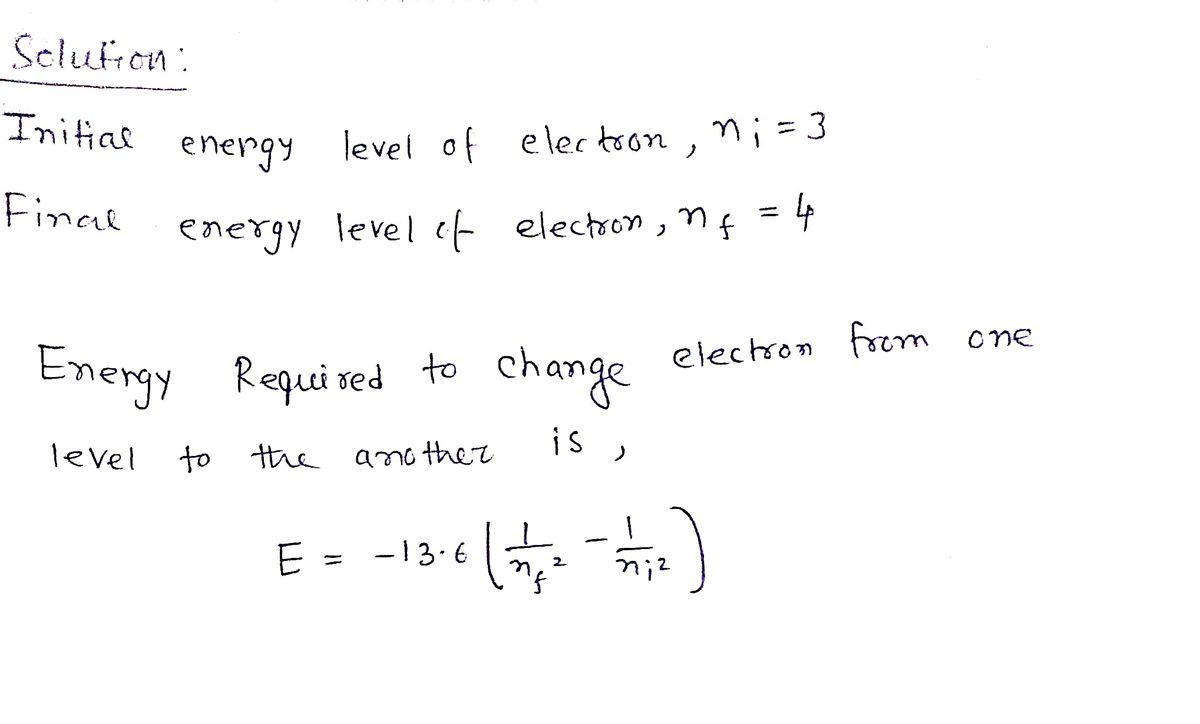 Solution:
Initial energy level of electron, nᵢ = 3
Final energy level of electron, n_f = 4
Energy Required to change electron from one
level to the another is,
E = -13.6 (1/n_f² - 1/nᵢ²)